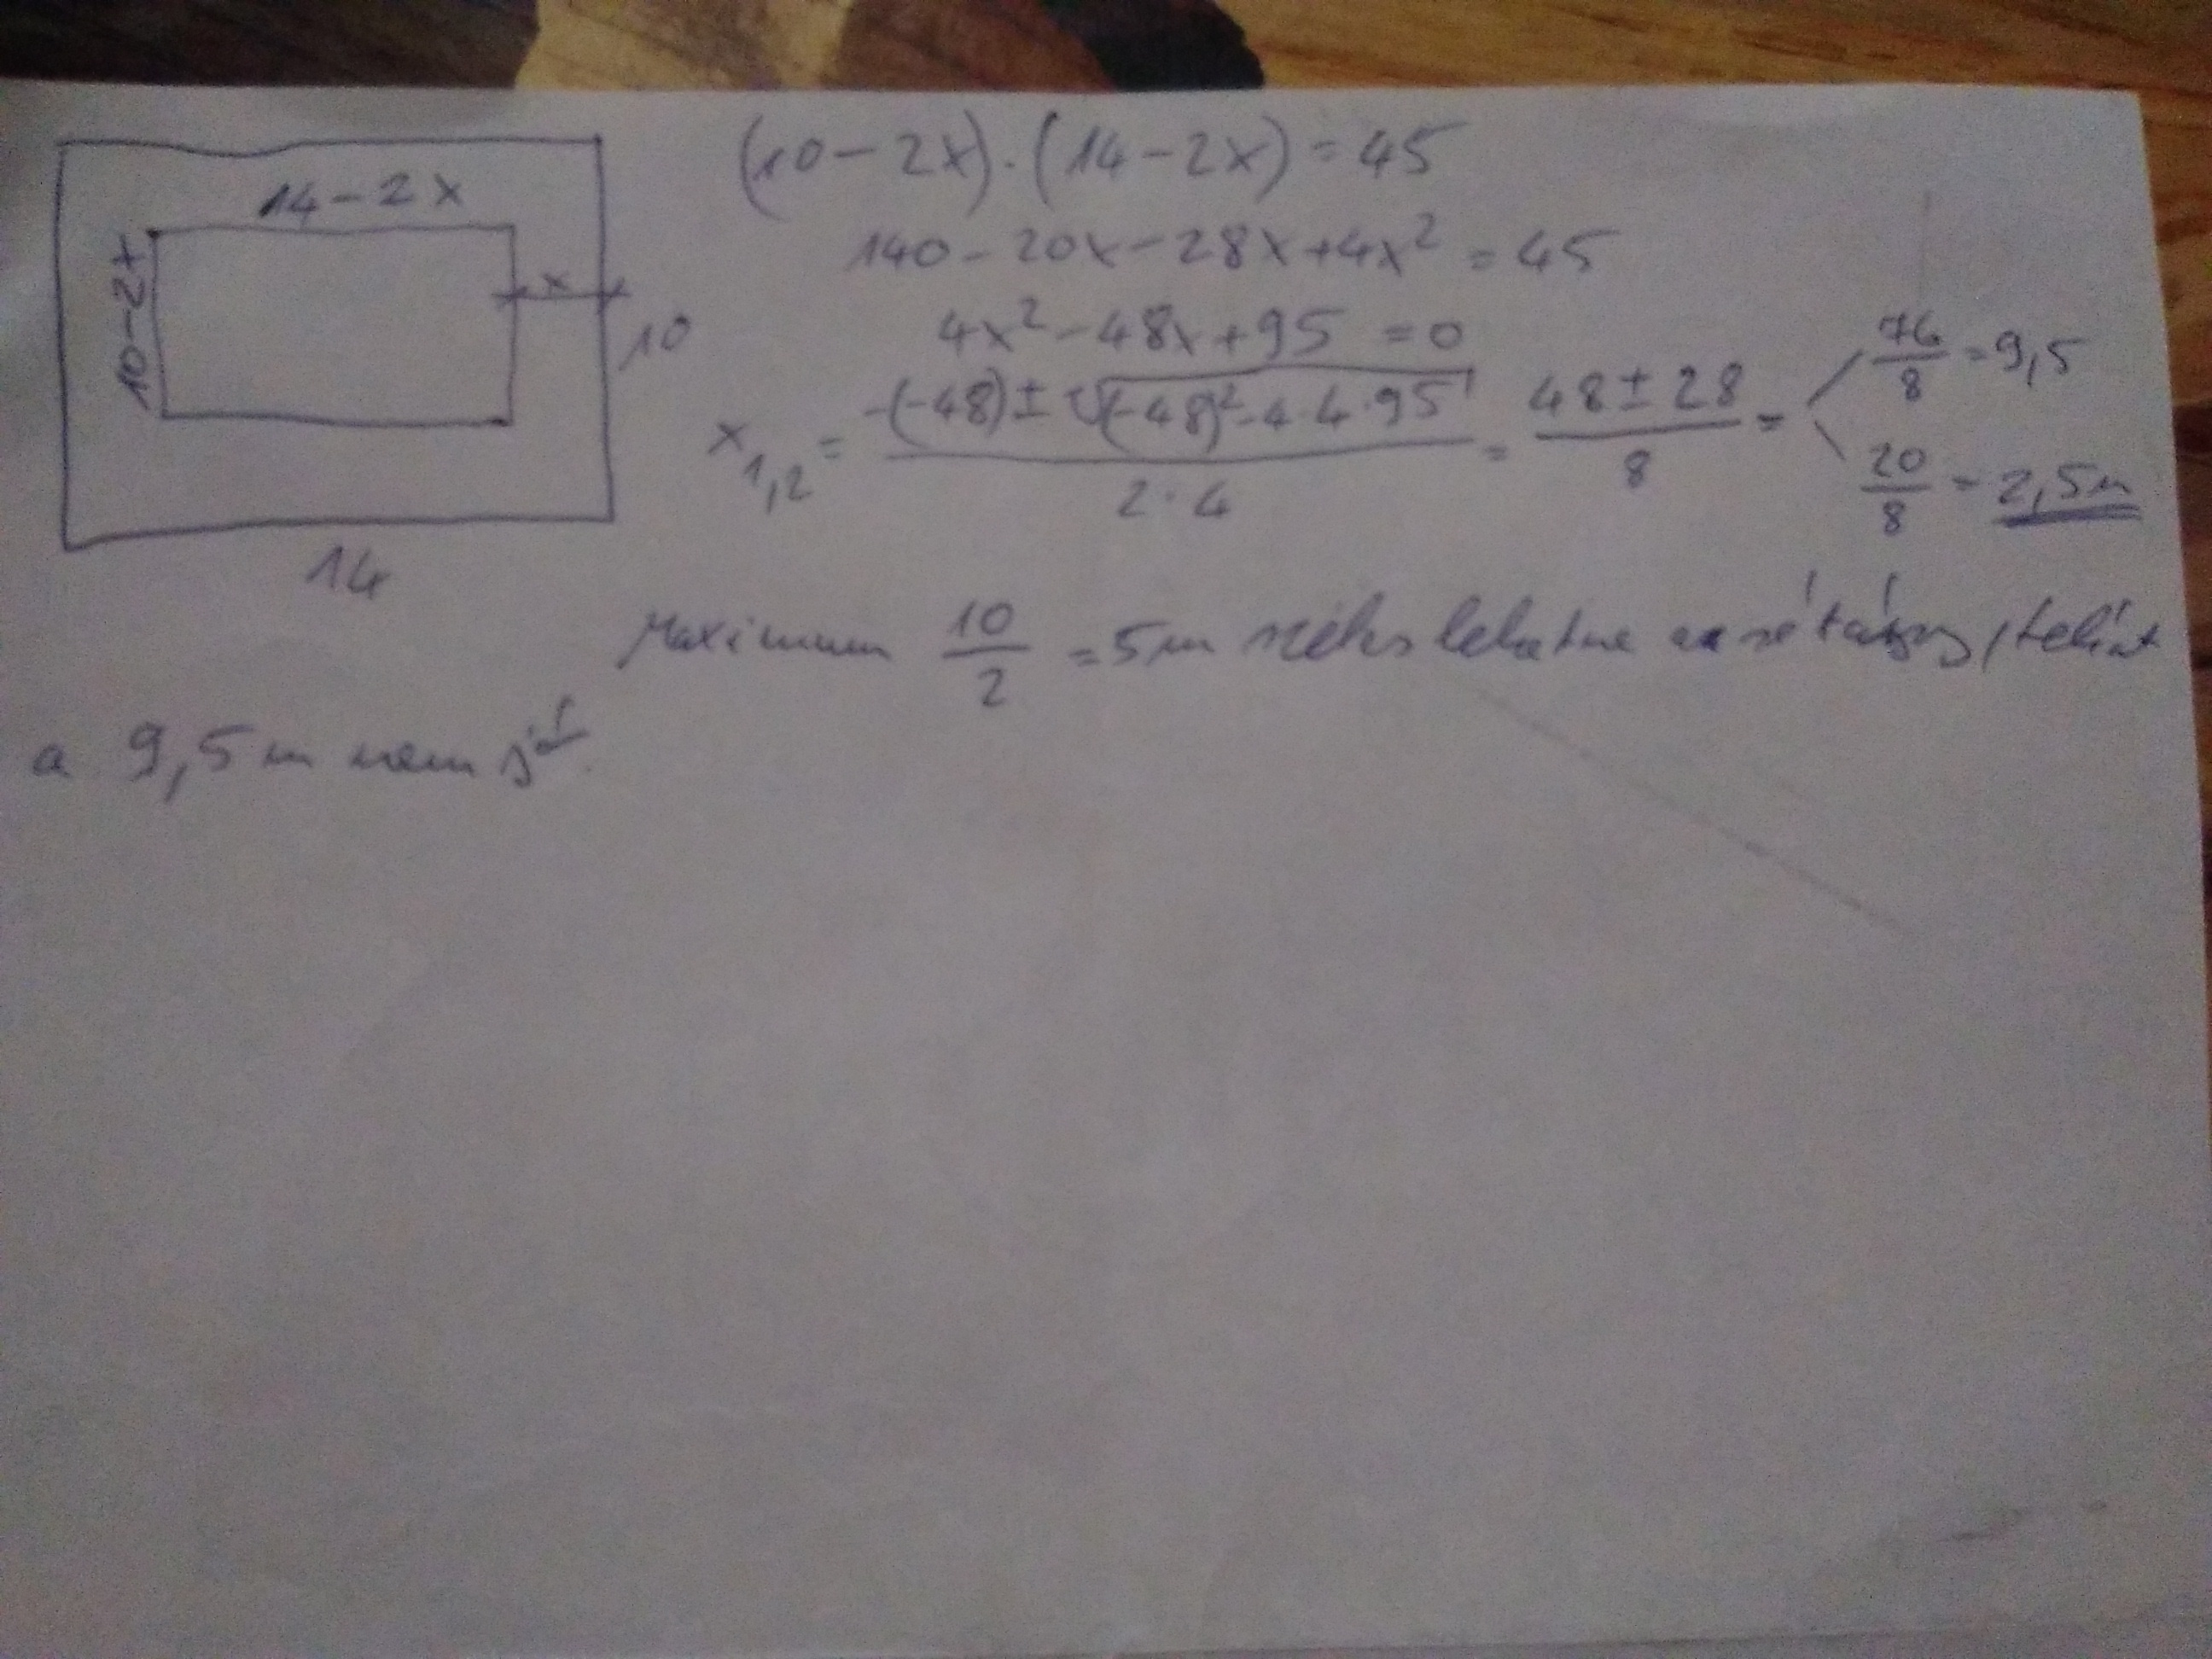 14-2x
10-2x
x
10
14
(10-2x)·(14-2x)=45
140-20x-28x+4x²=45
4x²-48x+95=0
x₁,₂ = (-(-48)±√((-48)²-4·4·95))/(2·4) = (48±28)/8 = 76/8=9,5
20/8=2,5m
Maximum 10/2=5m széles lehetne a sétány, tehát
a 9,5m nem jó.